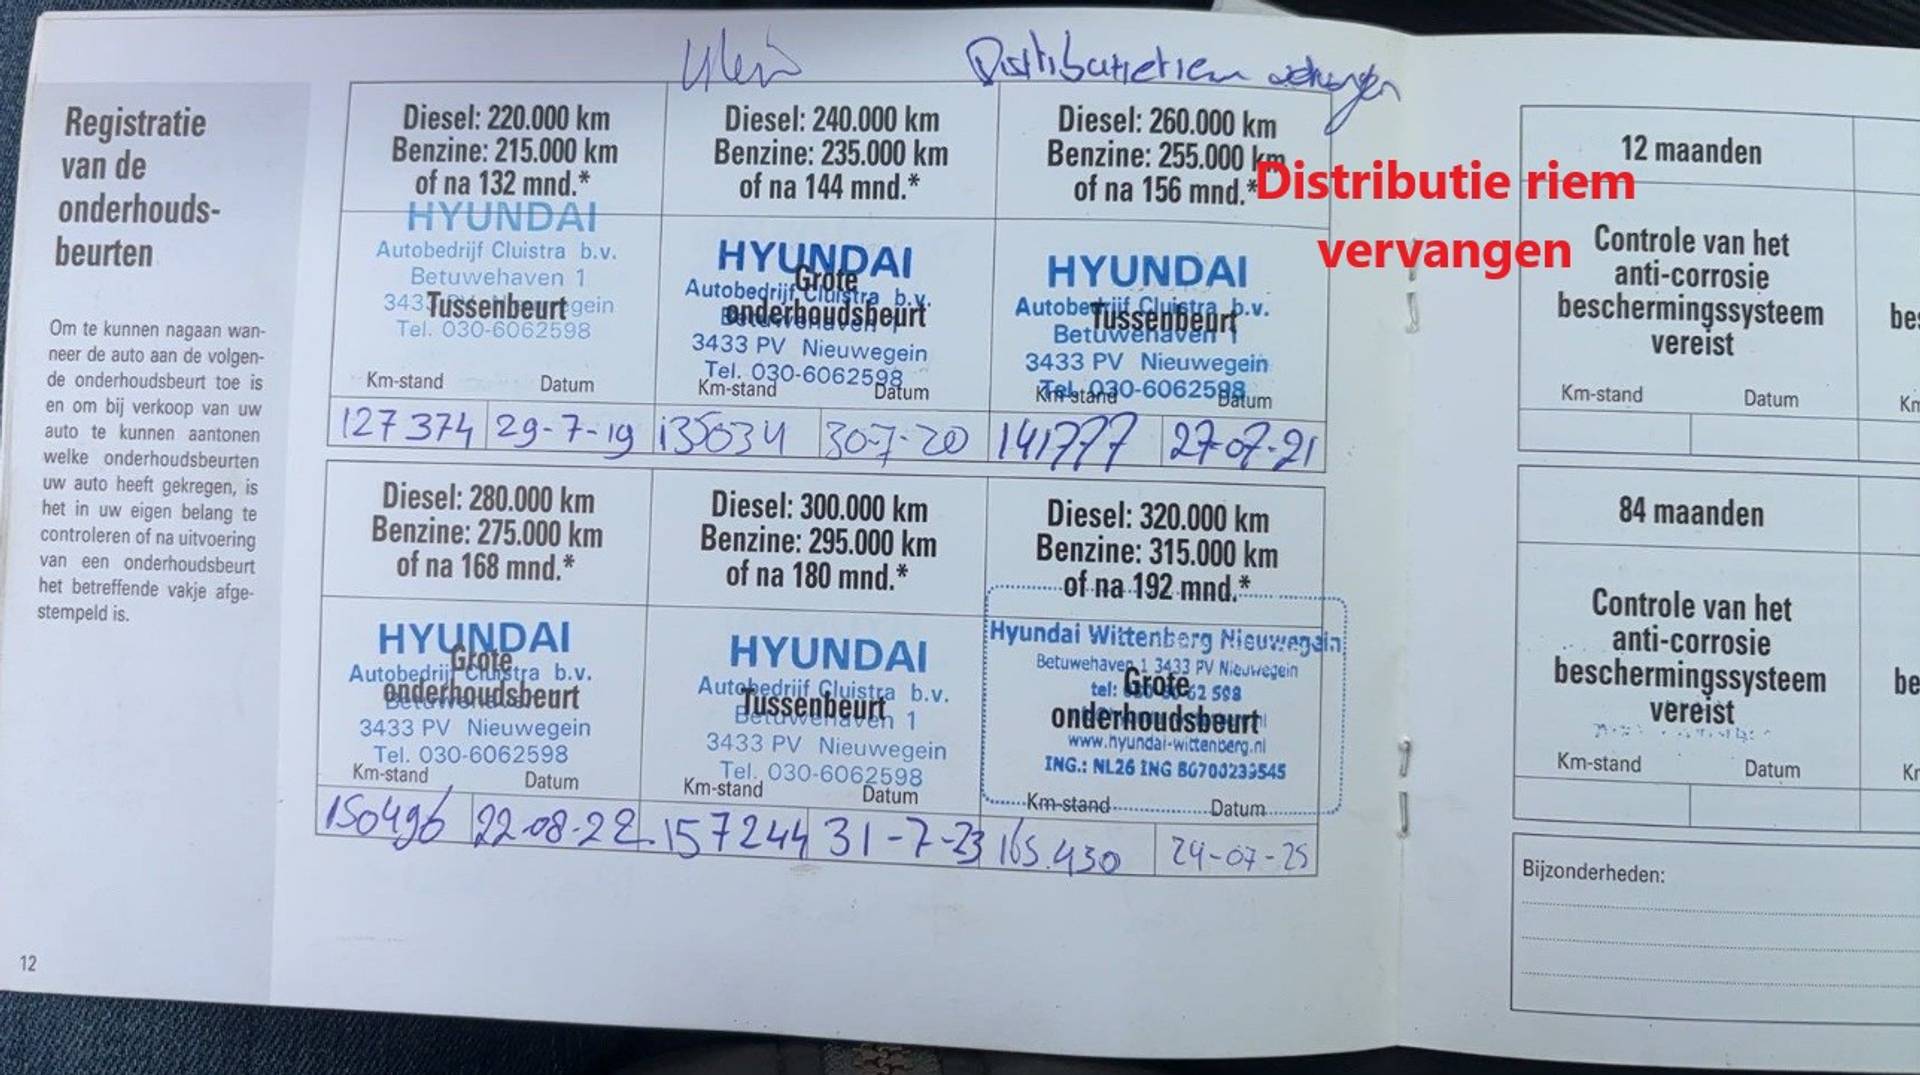 Klein
Distributieriem
Registratie
van de
onderhouds-
beurten
Om te kunnen nagaan wan-
neer de auto aan de volgen-
de onderhoudsbeurt toe is
en om bij verkoop van uw
auto te kunnen aantonen
welke onderhoudsbeurten
uw auto heeft gekregen, is
het in uw eigen belang te
controleren of na uitvoering
van een onderhoudsbeurt
het betreffende vakje afge-
stempeld is.
12
Diesel: 220.000 km
Benzine: 215.000 km
of na 132 mnd.*
HYUNDAI
Autobedrijf Cluistra b.v.
Betuwehaven 1
3433 PV Nieuwegein
Tussenbeurt
Tel. 030-6062598
Km-stand Datum
127374 29-7-19
Diesel: 240.000 km
Benzine: 235.000 km
of na 144 mnd.*
HYUNDAI
Grote
Autobedrijf Cluistra b.v.
onderhoudsbeurt
Betuwehaven 1
3433 PV Nieuwegein
Tel. 030-6062598
Km-stand Datum
135034 30-7-20
Diesel: 260.000 km
Benzine: 255.000 km
of na 156 mnd.*
Distributie riem
vervangen
HYUNDAI
Autobedrijf Cluistra b.v.
Tussenbeurt
Betuwehaven 1
3433 PV Nieuwegein
Tel. 030-6062598
Km-stand Datum
141777 27-07-21
Diesel: 280.000 km
Benzine: 275.000 km
of na 168 mnd.*
HYUNDAI
Grote
Autobedrijf Cluistra b.v.
onderhoudsbeurt
Betuwehaven
3433 PV Nieuwegein
Tel. 030-6062598
Km-stand Datum
150496 22-08-22
Diesel: 300.000 km
Benzine: 295.000 km
of na 180 mnd.*
HYUNDAI
Autobedrijf Cluistra b.v.
Tussenbeurt
Betuwehaven 1
3433 PV Nieuwegein
Tel. 030-6062598
Km-stand Datum
157244 31-7-23
Diesel: 320.000 km
Benzine: 315.000 km
of na 192 mnd.*
Hyundai Wittenberg Nieuwegein
Betuwehaven 1 3433 PV Nieuwegein
Grote
tel: 62 598
onderhoudsbeurt
www.hyundai-wittenberg.nl
ING.: NL26 ING B0700239545
Km-stand Datum
165.430 24-07-25
12 maanden
Controle van het
anti-corrosie
beschermingssysteem
vereist
Km-stand Datum
84 maanden
Controle van het
anti-corrosie
beschermingssysteem
vereist
Km-stand Datum
Bijzonderheden: